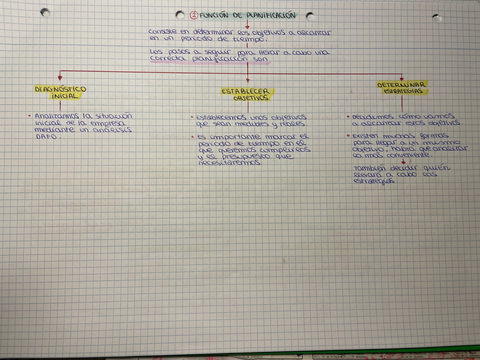 ① FUNCIÓN DE PLANIFICACIÓN
Consiste en determinar los objetivos a alcanzar
en un período de tiempo.
Los pasos a seguir para llevar a cabo una
correcta planificación son
DIAGNÓSTICO
INICIAL
• Analizamos la situación
inicial de la empresa
mediante un análisis
DAFO.
ESTABLECER
OBJETIVOS
• Establecemos unos objetivos
que sean medibles y reales.
• Es importante marcar el
período de tiempo en el
que queremos cumplirlos
y el presupuesto que
necesitaremos.
DETERMINAR
ESTRATEGIAS
• Decidimos cómo vamos
a alcanzar esos objetivos
• Existen muchas formas
para llegar a un mismo
objetivo, habrá que analizar
la más conveniente.
También decidir quién
llevará a cabo las
estrategias.